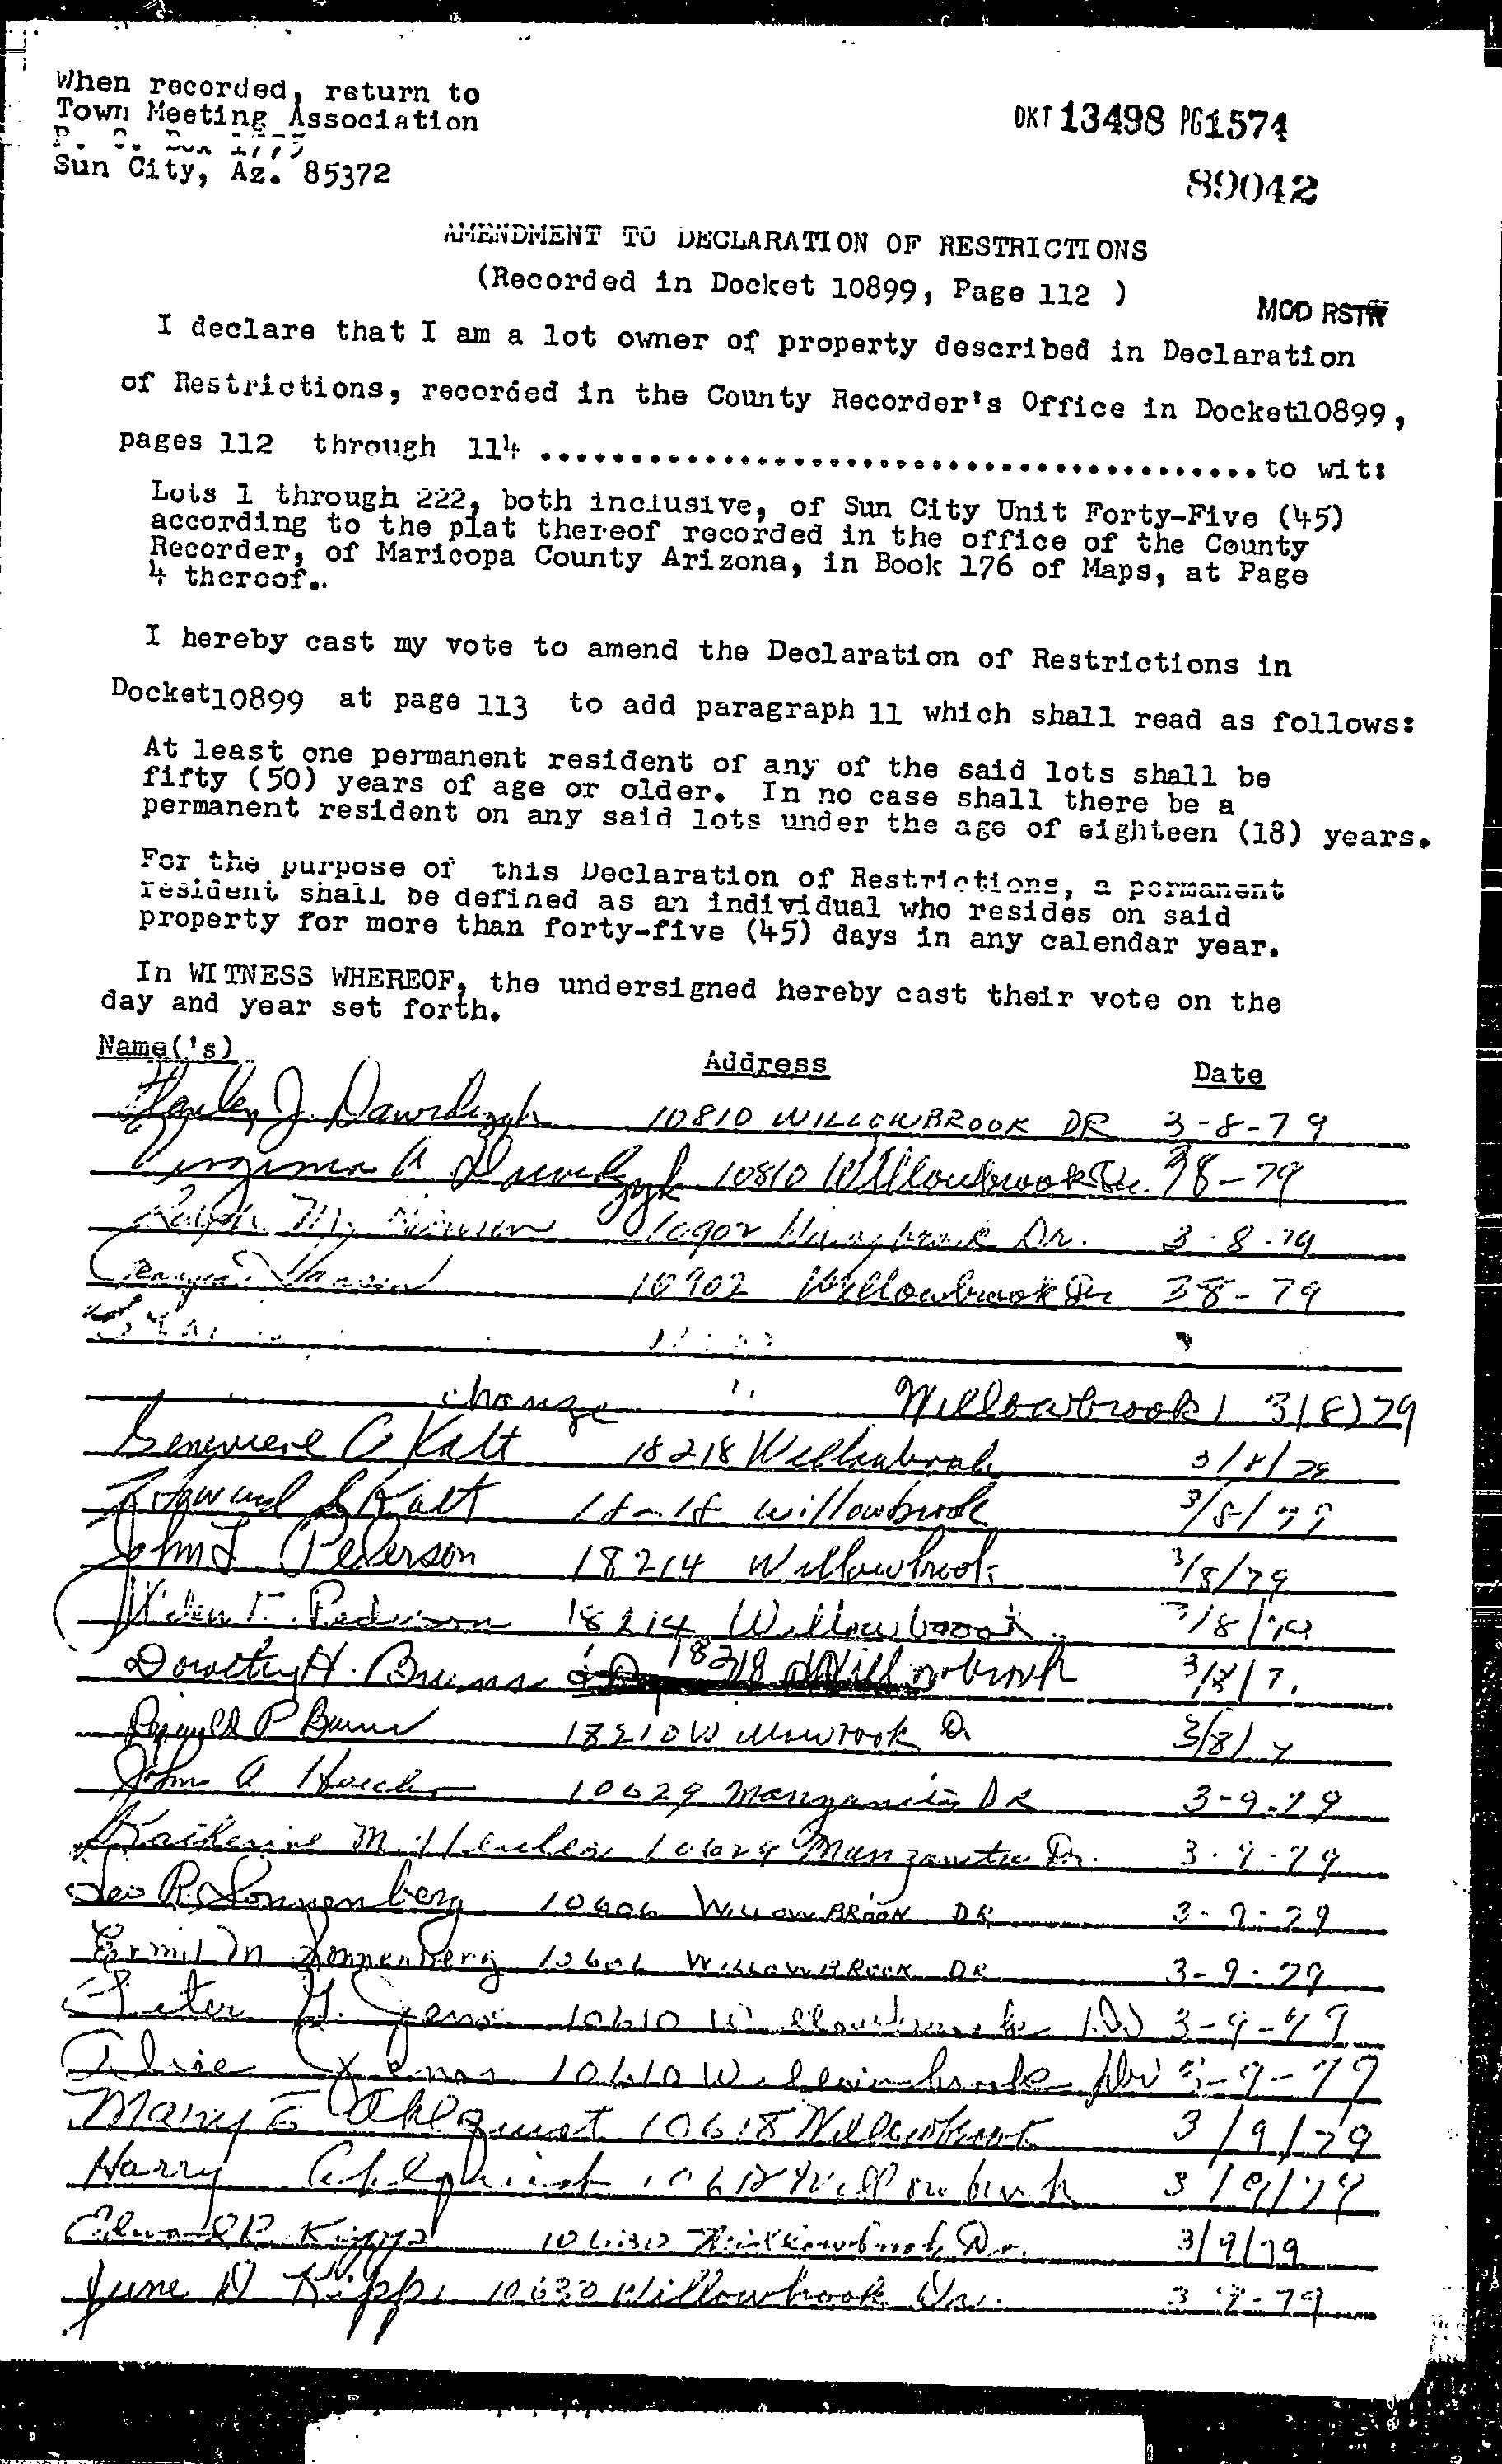 When recorded, return to
Town Meeting Association
P. O. Box 1775
Sun City, Az. 85372
DKT 13498 PG 1574
89042
AMENDMENT TO DECLARATION OF RESTRICTIONS
(Recorded in Docket 10899, Page 112 )
MOD RSTR
I declare that I am a lot owner of property described in Declaration
of Restrictions, recorded in the County Recorder's Office in Docket10899,
pages 112 through 114 ........................................to wit:
Lots 1 through 222, both inclusive, of Sun City Unit Forty-Five (45)
according to the plat thereof recorded in the office of the County
Recorder, of Maricopa County Arizona, in Book 176 of Maps, at Page
4 thereof..
I hereby cast my vote to amend the Declaration of Restrictions in
Docket10899 at page 113 to add paragraph 11 which shall read as follows:
At least one permanent resident of any of the said lots shall be
fifty (50) years of age or older. In no case shall there be a
permanent resident on any said lots under the age of eighteen (18) years.
For the purpose of this Declaration of Restrictions, a permanent
resident shall be defined as an individual who resides on said
property for more than forty-five (45) days in any calendar year.
In WITNESS WHEREOF, the undersigned hereby cast their vote on the
day and year set forth.
Name('s) Address Date
Stanley J. 10810 WILLOWBROOK DR 3-8-79
Virginia A 10810 Willowbrook Dr. 3 8-79
Ralph M. Dr. 3-8-79
10902 Willowbrook Dr 3-8-79
change Willowbrook 3/8/79
Genevieve C Kalt 18218 Willowbrook 3/8/79
Kalt Willowbrook 3/8/79
John J Pederson 18214 Willowbrook 3/8/79
Helen F. Pederson 18214 Willowbrook 3/8/79
Dorothy H. Burns 18210 Willowbrook 3/8/7
P Burns 18210 Willowbrook Dr 3/8/7
John A 10629 Manzanita DR 3-9-79
Katherine M. 10629 Manzanita Dr. 3-9-79
Leo R. Sonnenberg 10606 WILLOWBROOK DR 3-9-79
M Sonnenberg 10606 WILLOWBROOK DR 3-9-79
Peter G. Jenos 10610 Willowbrook Dr 3-9-79
Alice Jenos 10610 Willowbrook Dr 3-9-79
Mary E Ahlquist 10618 Willowbrook 3/9/79
Harry Ahlquist 10618 Willowbrook 3/9/79
Edward R. Kipp 10630 Willowbrook Dr. 3/9/79
June N. Kipp 10630 Willowbrook Dr. 3-9-79